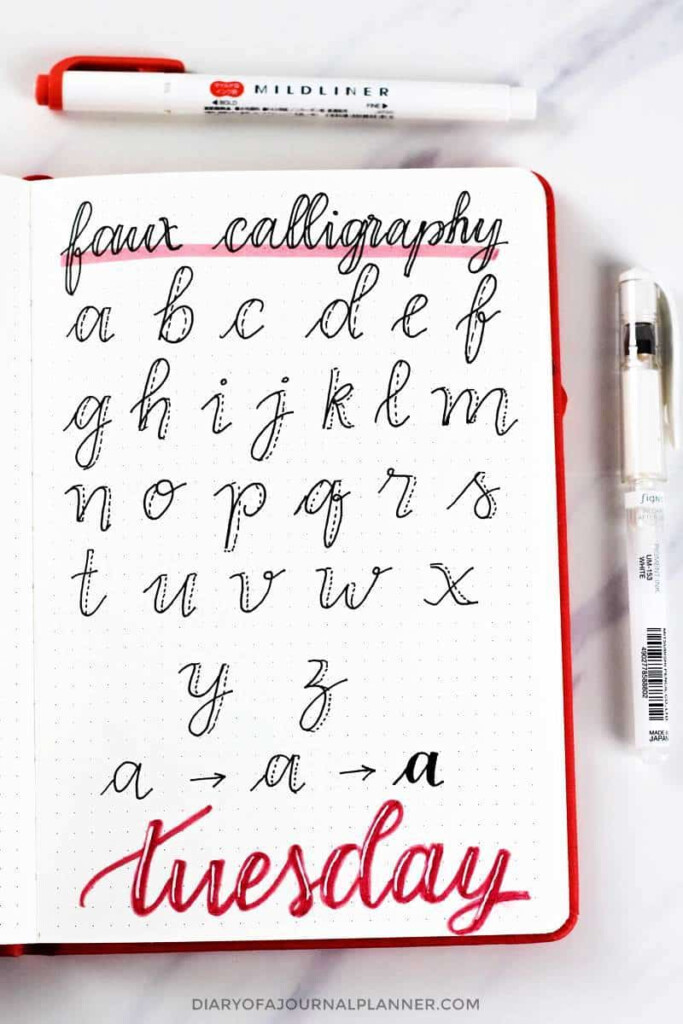 MILDLINER
◀BOLD
FINE▶
faux calligraphy
a b c d e f
g h i j k l m
n o p q r s
t u v w x
y z
a → a → a
tuesday
Signo
UM-153
WHITE
4902778568802
MADE IN
JAPAN
DIARYOFAJOURNALPLANNER.COM